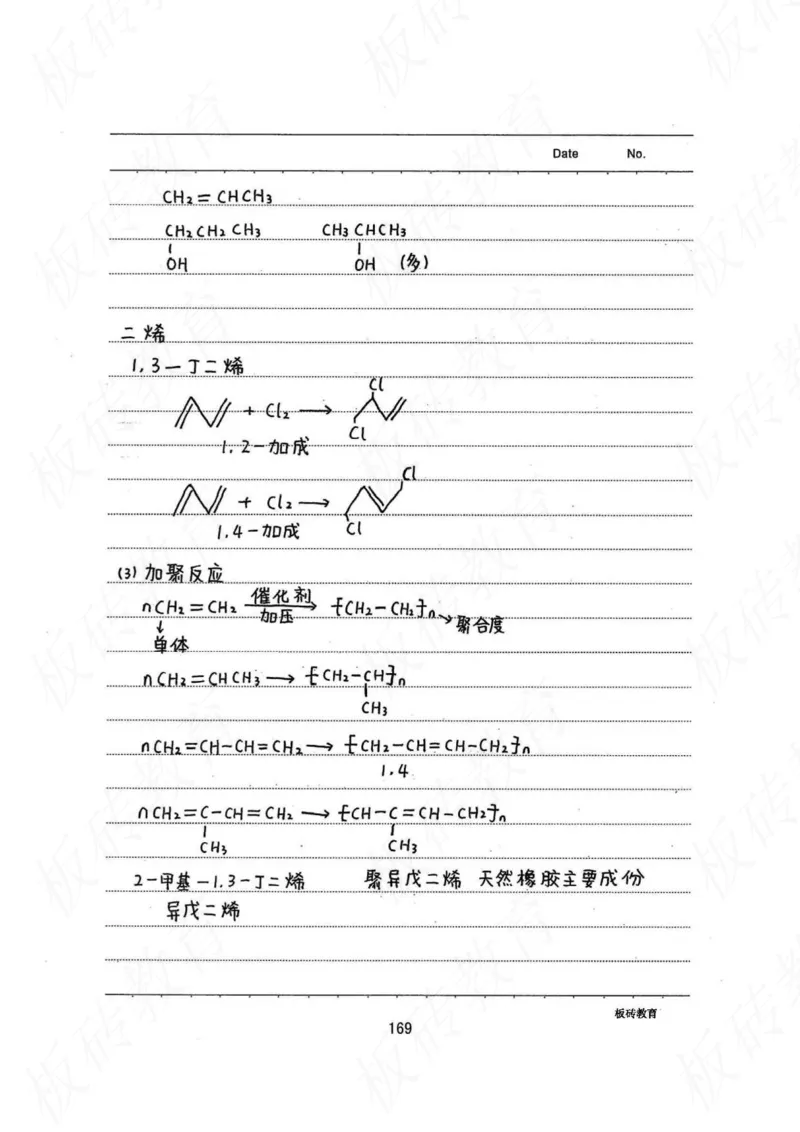 Date No.
CH₂=CHCH₃
CH₂CH₂CH₃ CH₃CHCH₃
OH OH (多)
二烯
1,3-丁二烯
Cl
+ Cl₂ →
Cl
1.2-加成
Cl
+ Cl₂ →
1.4-加成 Cl
(3) 加聚反应
nCH₂=CH₂ 催化剂 加压 → [CH₂-CH₂]n → 聚合度
↓
单体
nCH₂=CHCH₃ → [CH₂-CH]n
CH₃
nCH₂=CH-CH=CH₂ → [CH₂-CH=CH-CH₂]n
1.4
nCH₂=C-CH=CH₂ → [CH-C=CH-CH₂]n
CH₃ CH₃
2-甲基-1.3-丁二烯 聚异戊二烯 天然橡胶主要成份
异戊二烯
板砖教育
169